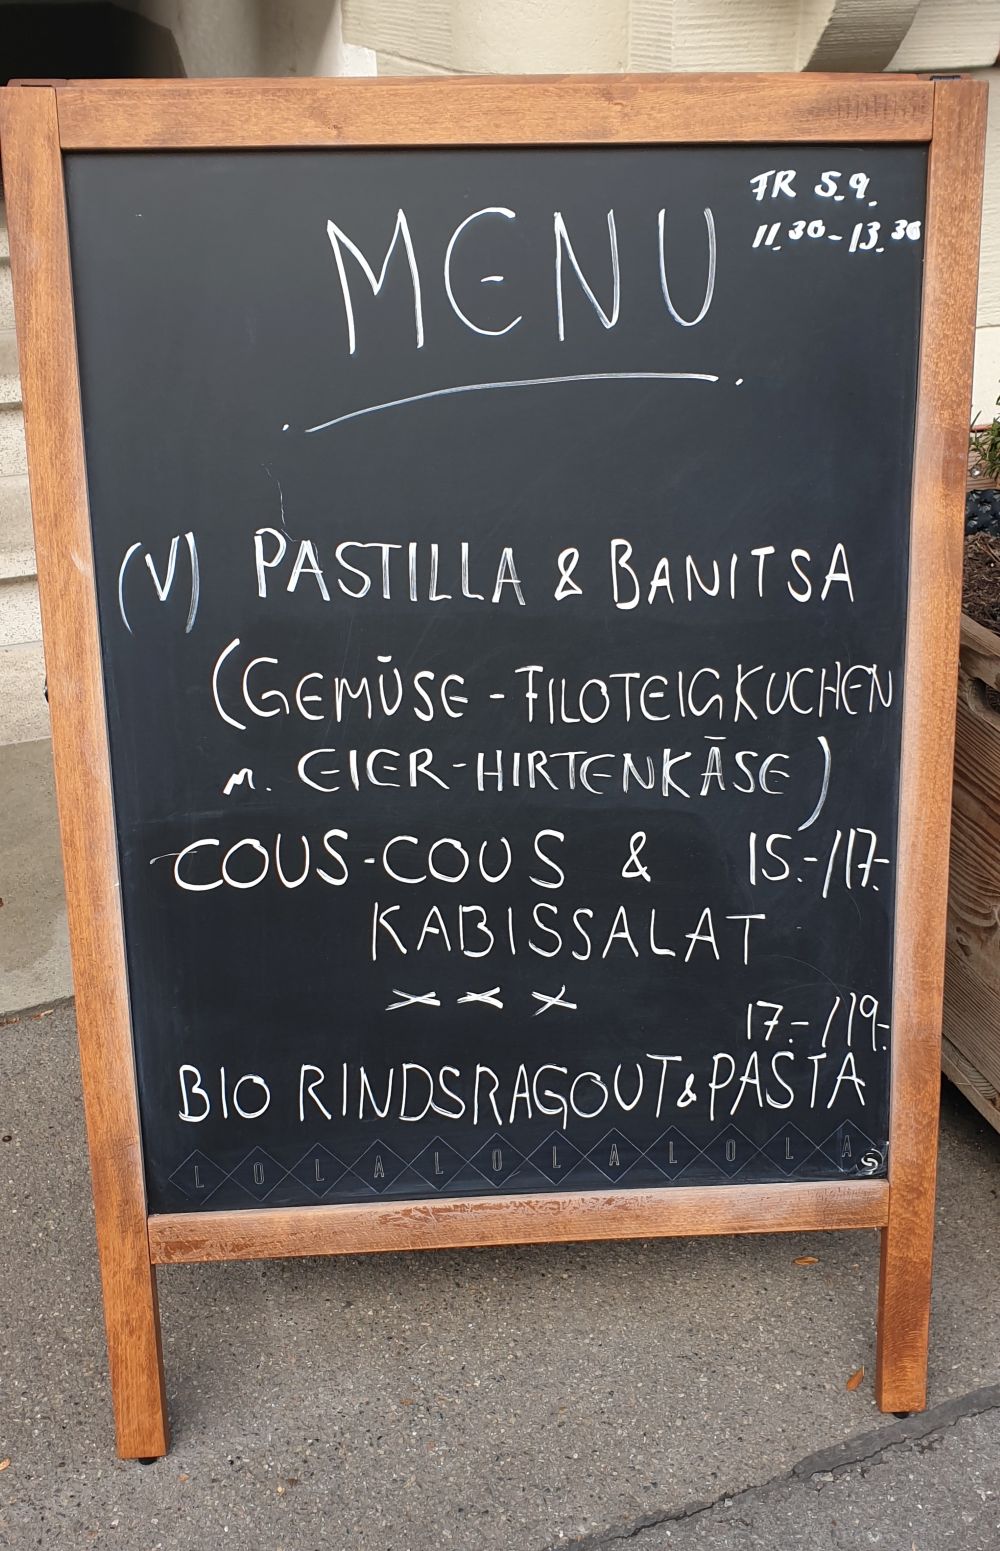 FR 5.9.
11.30-13.30
MENU
(V) PASTILLA & BANITSA
(GEMÜSE-FILOTEIGKUCHEN
M. EIER-HIRTENKÄSE)
COUS-COUS & 15.-/17.-
KABISSALAT
17.-/19.-
BIO RINDSRAGOUT & PASTA
LOLALOLALOLA